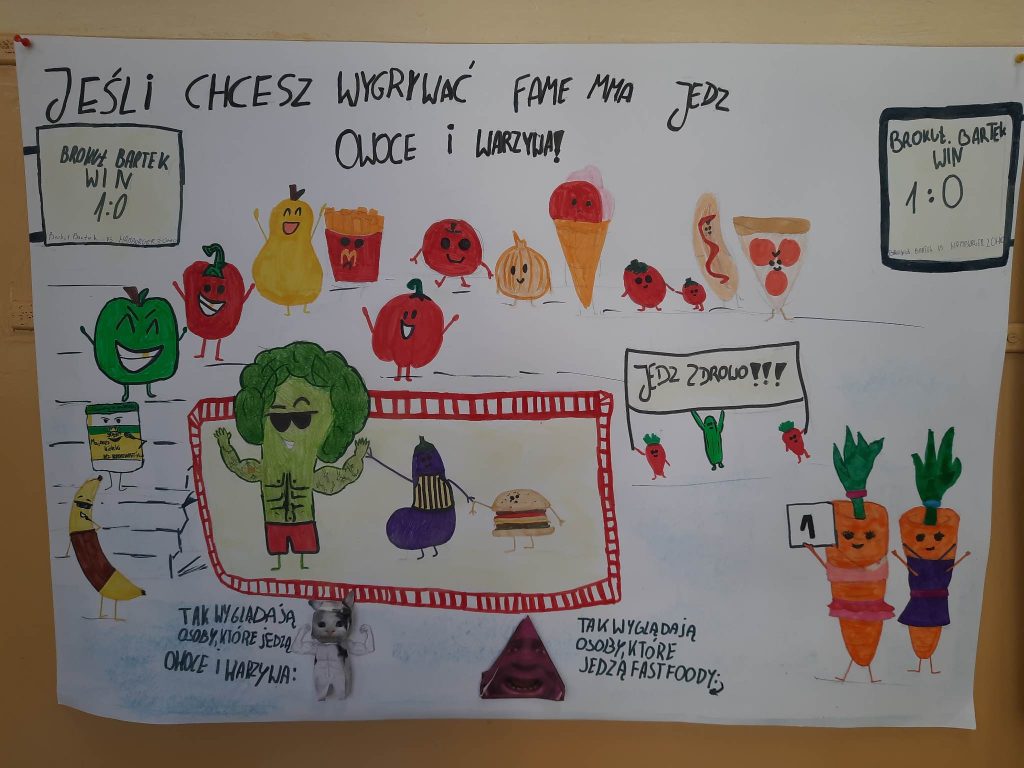 JEŚLI CHCESZ WYGRYWAĆ FAME MMA JEDZ
OWOCE I WARZYWA!
BROKUŁ BARTEK
WIN
1:0
BROKUŁ BARTEK
WIN
1:0
BROKUŁ BARTEK VS HAMBURGER
M
JEDZ ZDROWO!!!
1
TAK WYGLĄDAJĄ
OSOBY, KTÓRE JEDZĄ
OWOCE I WARZYWA:
TAK WYGLĄDAJĄ
OSOBY, KTÓRE
JEDZĄ FASTFOODY: